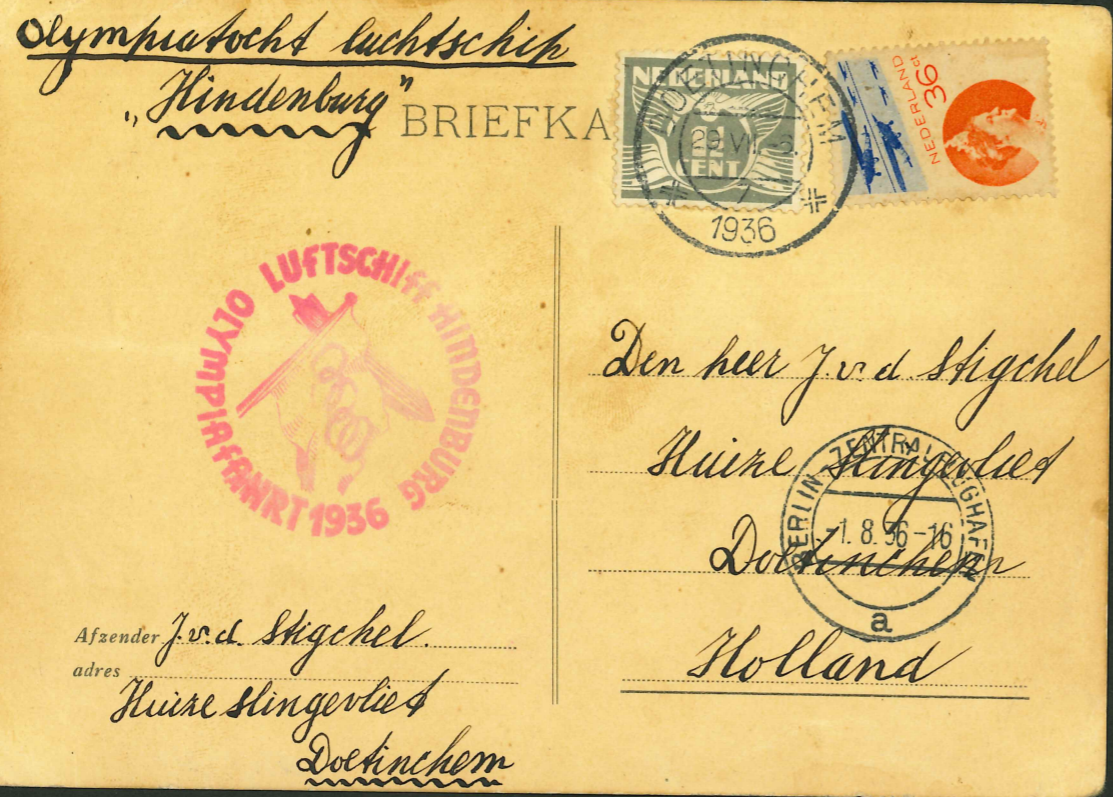 Olympiatocht luchtschip
„Hindenburg”
BRIEFKA
NEDERLAND
CENT
NEDERLAND
36 ct
DOETINCHEM
29 VII
1936
OLYMPIAFAHRT 1936
LUFTSCHIFF HINDENBURG
Den heer J. v. d. Stigchel
Huize Slingevliet
Doetinchem
Holland
BERLIN ZENTRALFLUGHAFEN
-1.8.36-16
a
Afzender J. v. d. Stigchel.
adres
Huize Slingevliet
Doetinchem